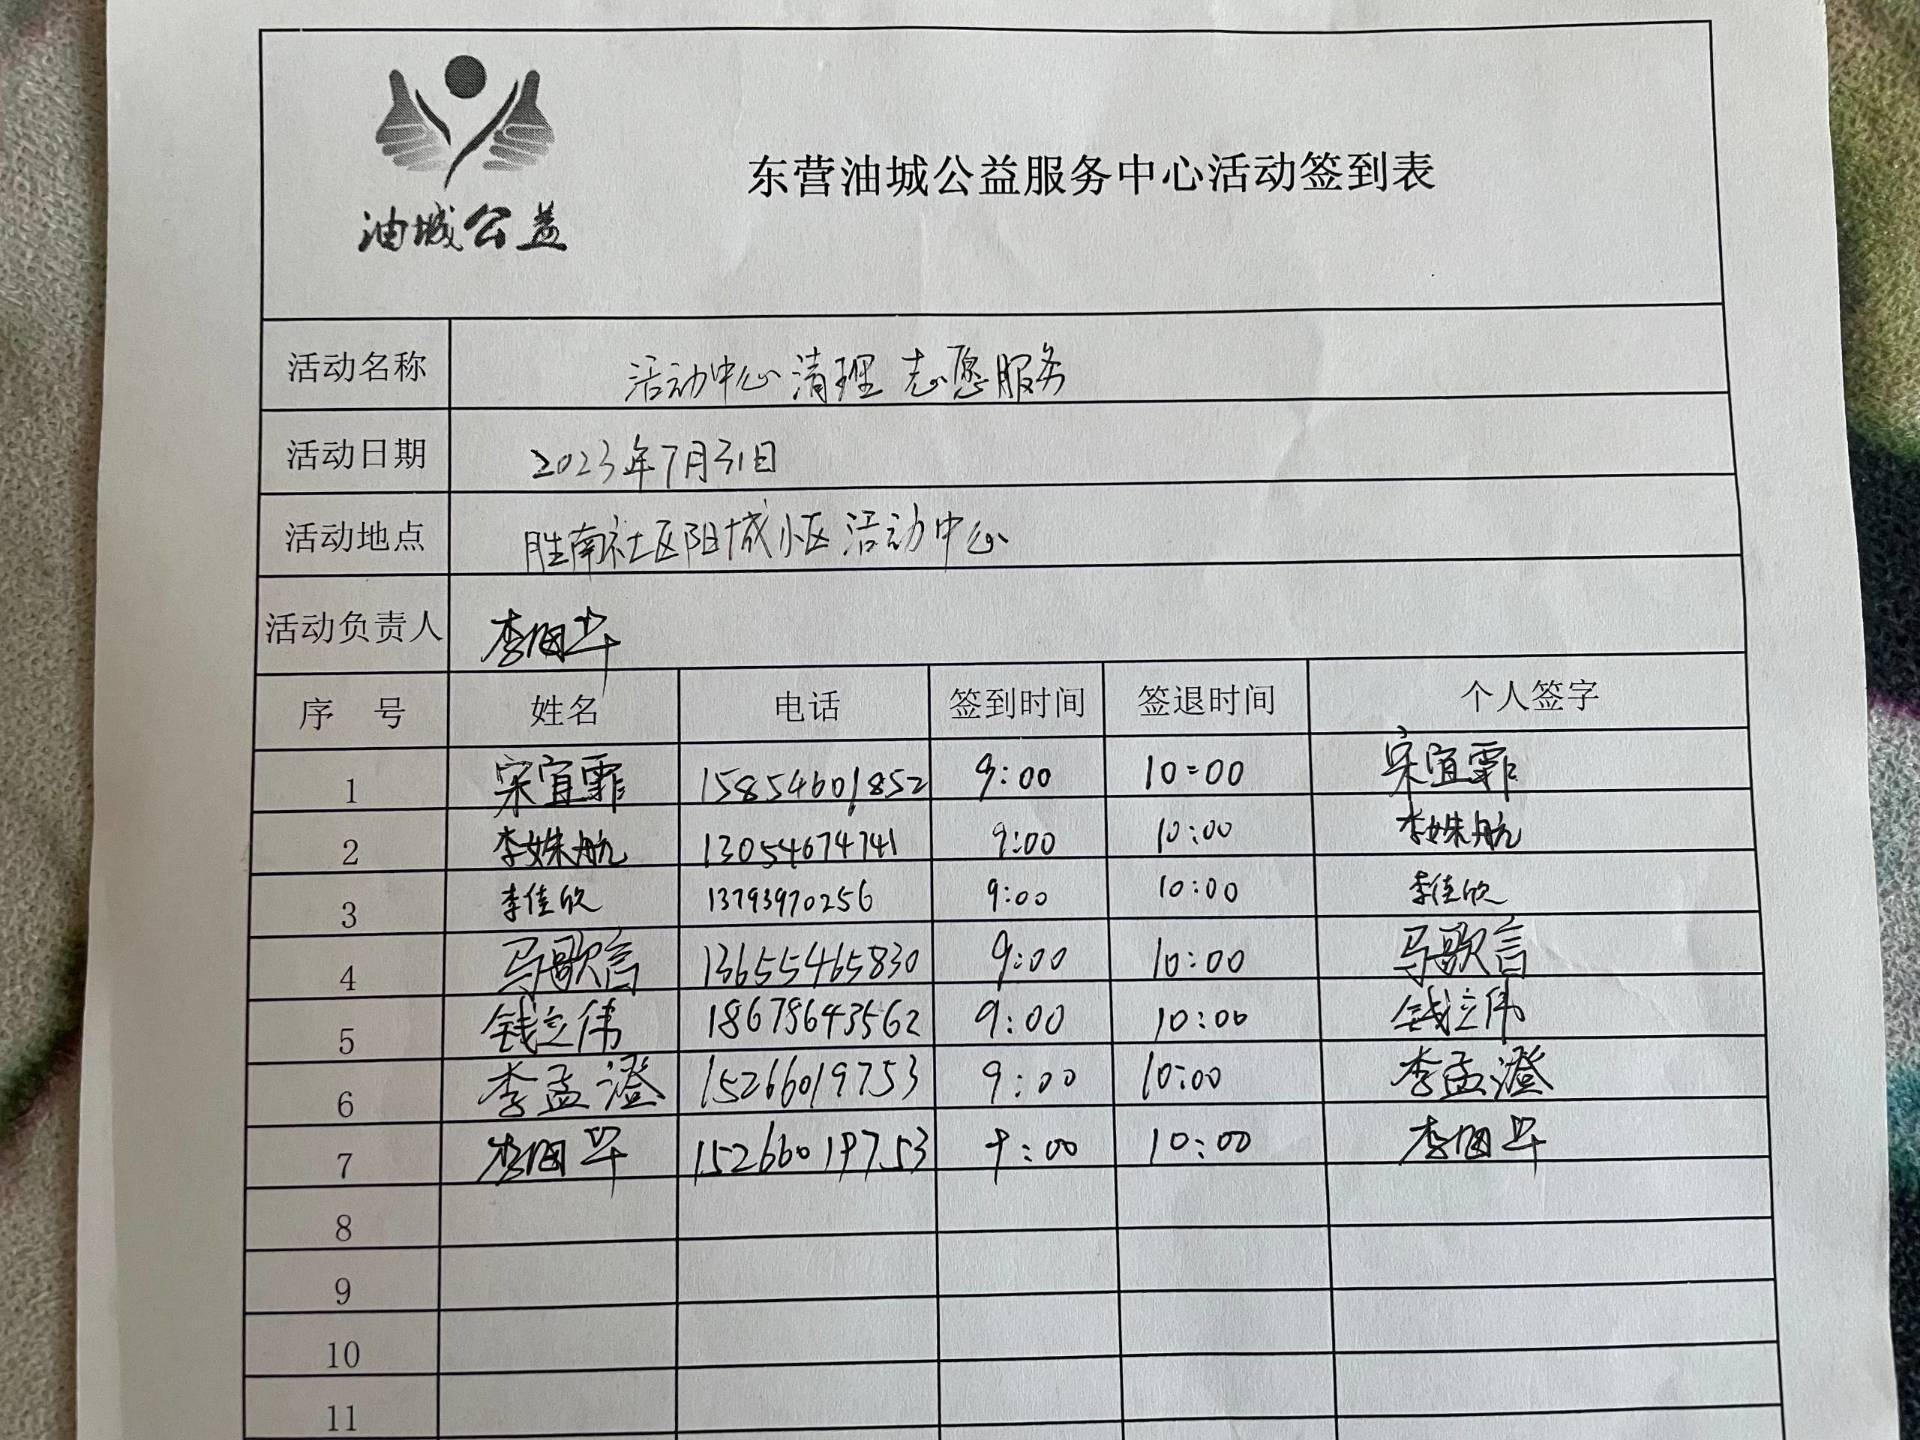 油城公益
东营油城公益服务中心活动签到表
活动名称 活动中心清理志愿服务
活动日期 2023年7月31日
活动地点 胜南社区阳城小区活动中心
活动负责人 李国华
序 号 姓名 电话 签到时间 签退时间 个人签字
1 宋宜霏 15854601852 9:00 10:00 宋宜霏
2 李姝航 13054674741 9:00 10:00 李姝航
3 李佳欣 13793970256 9:00 10:00 李佳欣
4 马歌言 13655465830 9:00 10:00 马歌言
5 钱立伟 18678643562 9:00 10:00 钱立伟
6 李孟澄 15266019753 9:00 10:00 李孟澄
7 李国华 15266019753 9:00 10:00 李国华
8
9
10
11